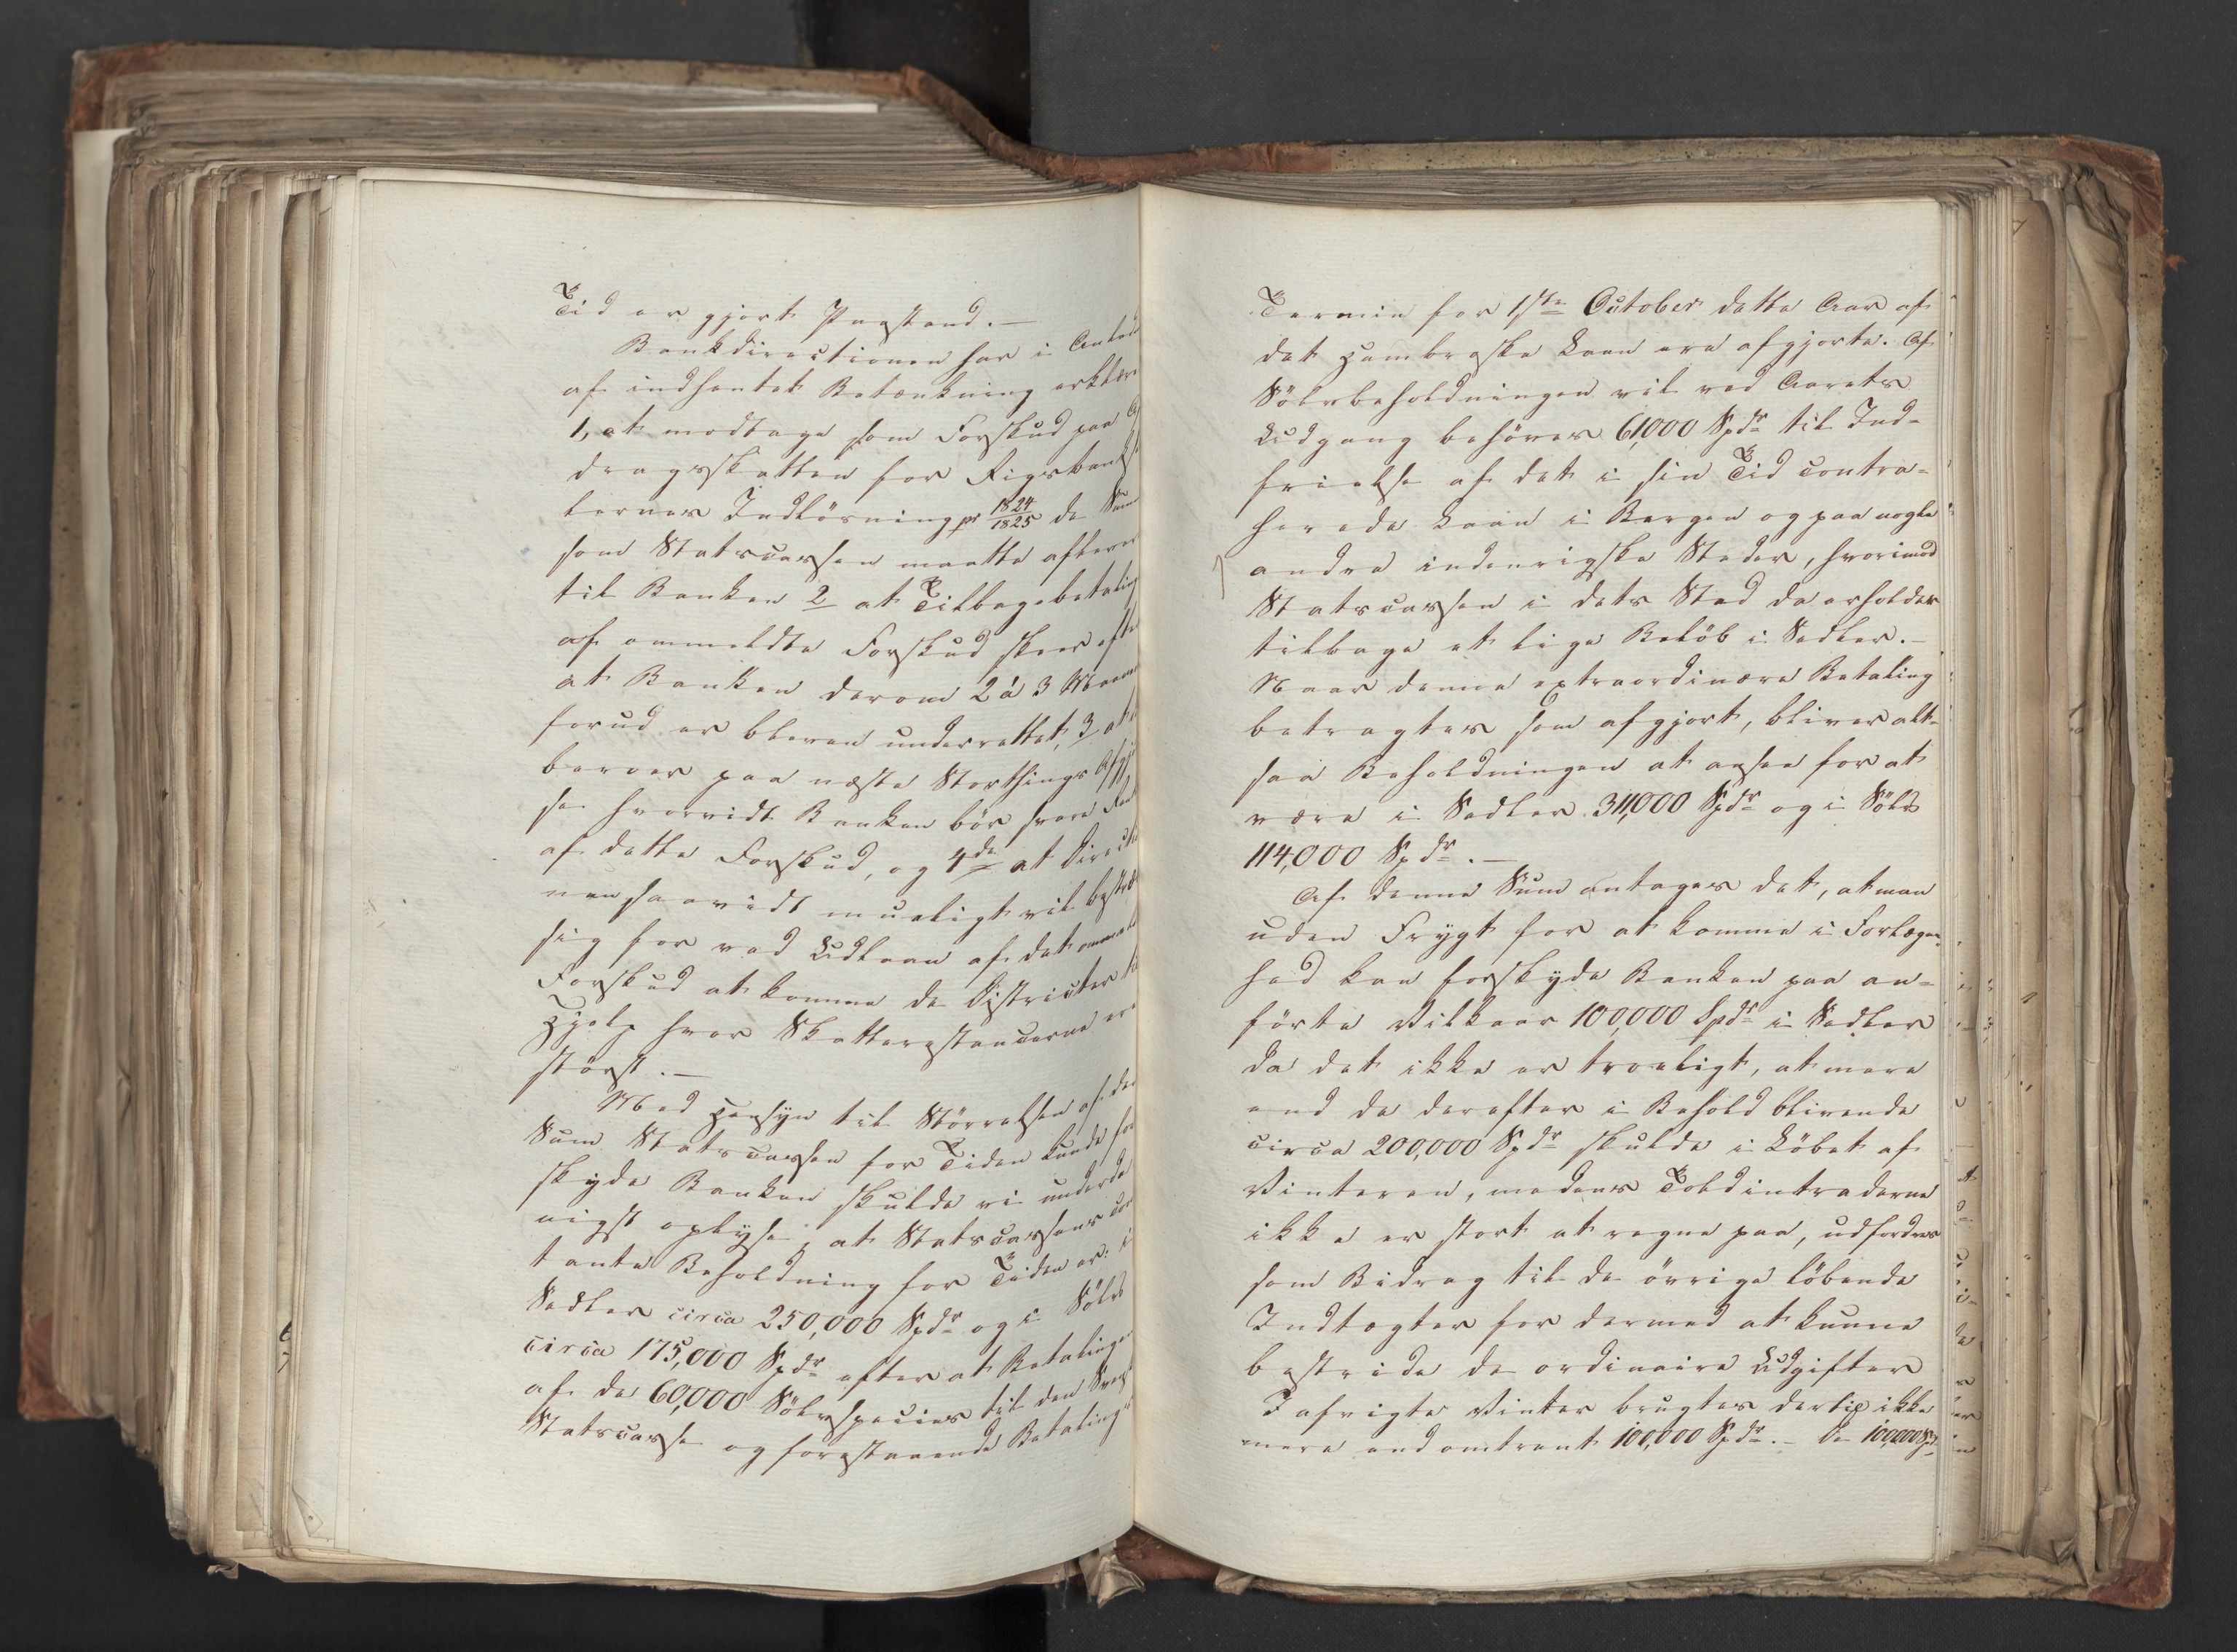 Tid er gjort Paastand.—
Bankdirectionen har i Anled
af indhentet Betænkning erklær
1, at modtage som Forskud paa
dragsskatten for Rigsbank
lernes Indlösning pr 1824/1825 de Sum
som Statscassen maatte aflever
til Banken 2 at Tilbagebetaling
af ommeldte Forskud skeer efter
at Banken derom 2 à 3 Maane
forud er bleven underrettet, 3 at
beroer paa næste Storthings Afgjö
se hvorvidt Banken bör svare Ren
af dette Forskud, og 4de at Directi
nen saavidt mueligt vil bestræ
sig for ved Udlaan af det ommel
Forskud at komme de Districter til
Hjelp hvor Skatterestancerne ere
störst.—
Med Hensyn til Störrelsen af den
Sum Statscassen for Tiden kunde for
skyde Banken skulde vi underda
nigst oplyse, at Statscassens con
tante Beholdning for Tiden er: i
Sedler circa 250,000 Spdr og i Sölv
circa 175,000 Spdr efter at Betalingen
af de 60,000 Sölvspecier til den Svensk
Statscasse og forestaaende Betaling
Termin for 1ste October dette Aar af
det Hambroske Laan ere afgjorte. Af
Sölvbeholdningen vil ved Aarets
Udgang behöves 61,000 Spdr til Ind-
frielse af det i sin Tid contra-
herede Laan i Bergen og paa nogle
andre indenrigske Steder, hvorimod
Statscassen i dets Sted da erholder
tilbage et lige Belöb i Sedler.—
Naar denne extraordinære Betaling
betragtes som afgjort, bliver alt-
saa Beholdningen at ansee for at
være i Sedler 311,000 Spdr og i Sölv
114,000 Spdr.—
Af denne Sum antages det, at man
uden Frygt for at komme i Forlegen-
hed kan forskyde Banken paa an-
förte Vilkaar 100,000 Spdr i Sedler
da det ikke er troeligt, at mere
end de derefter i Behold blivende
circa 200,000 Spdr skulde i Löbet af
Vinteren, medens Toldintraderne
ikke er stort at regne paa, udfordres
som Bidrag til de övrige löbende
Indtægter for dermed at kunne
bestride de ordinaire Udgifter
I afvigte Vinter brugtes dertil ikke
mere end omtrent 100,000 Spdr.— De 100,000 Spdr